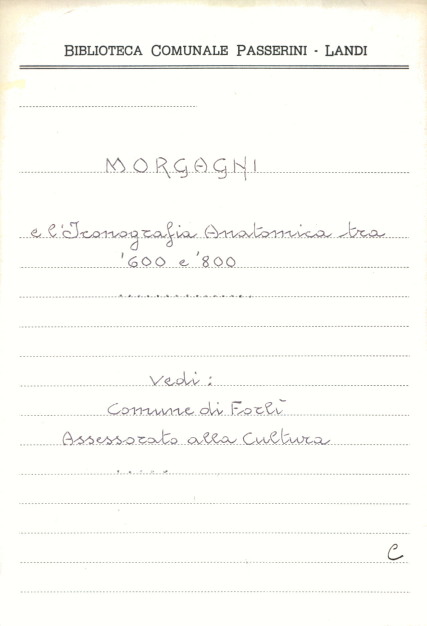 BIBLIOTECA COMUNALE PASSERINI - LANDI
MORGAGNI
e l'Iconografia Anatomica tra
'600 e '800
..................
Vedi:
Comune di Forlì
Assessorato alla Cultura
.....
C